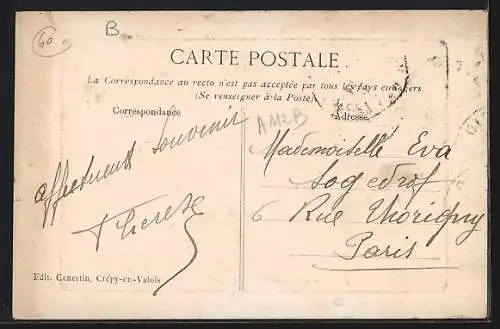 60
B
CARTE POSTALE
La Correspondance au recto n'est pas acceptée par tous les pays étrangers
(Se renseigner à la Poste)
Correspondance
Adresse
affectueux souvenir
Therese
AM2B
Mademoiselle Eva
6 Rue Thorigny
Paris
Edit. Genestin, Crépy-en-Valois